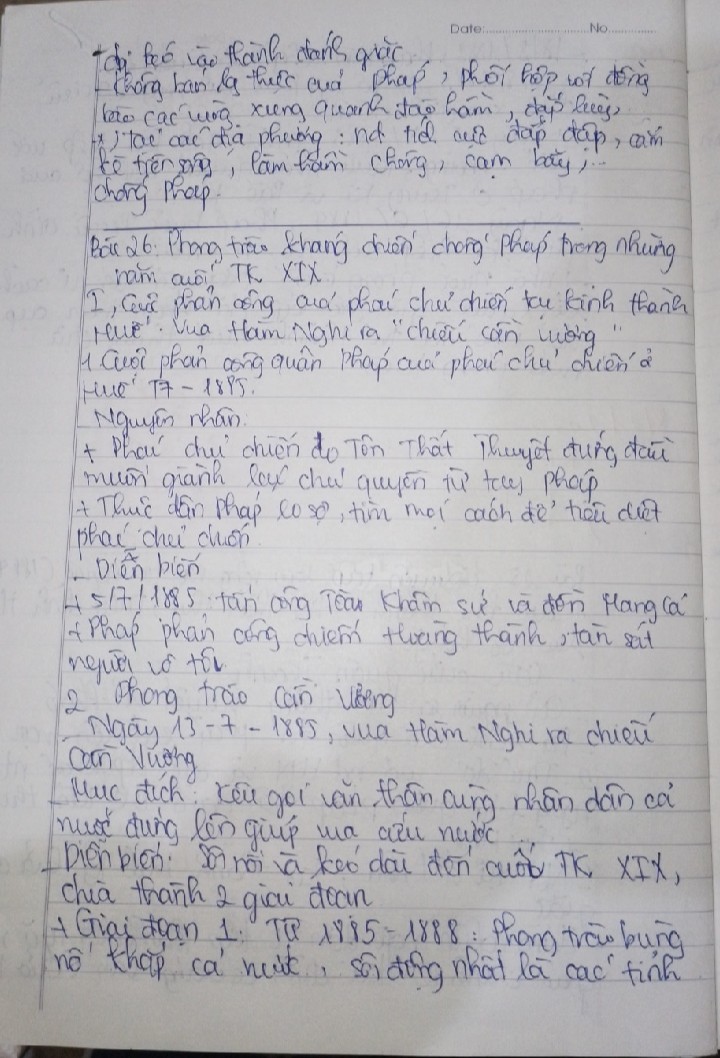 Date: No.
kéo vào thành đánh giặc
- Chống bán lạ thực của Pháp, phối hợp với đồng
bào các vùng xung quanh đào hầm, đắp luỹ,
*, Tại các địa phương: nd tiếp tục đắp đập, cắm
kè trên sông, làm hầm chông, cạm bẫy,...
chống Pháp.
Bài 26: Phong trào kháng chiến chống Pháp trong những
năm cuối TK XIX
I, Cuộc phản công của phái chủ chiến tại kinh thành
Huế. Vua Hàm Nghi ra "chiếu cần vương"
1. Cuộc phản công quân Pháp của phái chủ chiến ở
Huế T7 - 1885.
- Nguyên nhân:
+ Phái chủ chiến do Tôn Thất Thuyết đứng đầu
muốn giành lại chủ quyền từ tay Pháp
+ Thực dân Pháp lo sợ, tìm mọi cách để tiêu diệt
phái chủ chiến.
- Diễn biến
+ 5/7/1885 tấn công Toà Khâm sứ và đồn Mang Cá
+ Pháp phản công chiếm Hoàng thành, tàn sát
người vô tội
2 Phong trào Cần Vương
- Ngày 13-7-1885, vua Hàm Nghi ra chiếu
Cần Vương
- Mục đích: Kêu gọi văn thân cùng nhân dân cả
nước đứng lên giúp vua cứu nước
- Diễn biến: Sôi nổi và kéo dài đến cuối TK XIX,
chia thành 2 giai đoạn
+ Giai đoạn 1: Từ 1885-1888: Phong trào bùng
nổ khắp cả nước, sôi động nhất là các tỉnh